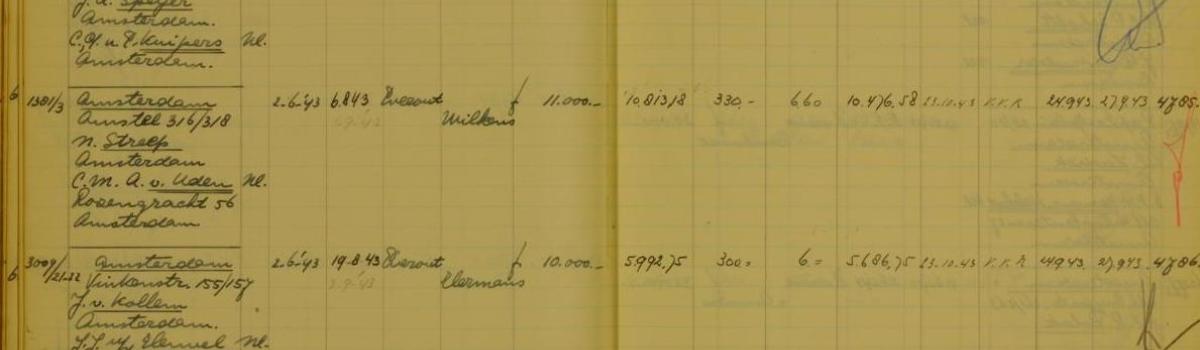 J. A. Speyer
Amsterdam.
Kuipers Nl.
Amsterdam.
6 1381/3 Amsterdam 2-6-'43 6.8.43 Everout f 11.000.- 10.813,18 330.- 6,60 10.476.58 23.10.43 K.K.R 24943 27943 4785.
Amstel 316/318 Wilkens
N. Streep
Amsterdam
C. M. A. v. Uden Nl.
Rozengracht 56
Amsterdam
6 3009/21-22 Amsterdam 2-6-'43 19.8.43 Everout f 10.000.- 5.992,75 300.= 6.= 5.686,75 23.10.43 K.K.R 24943 27943 4786.
Vinkenstr. 155/157 Elermans
J. v. Kollem
Amsterdam.
Nl.